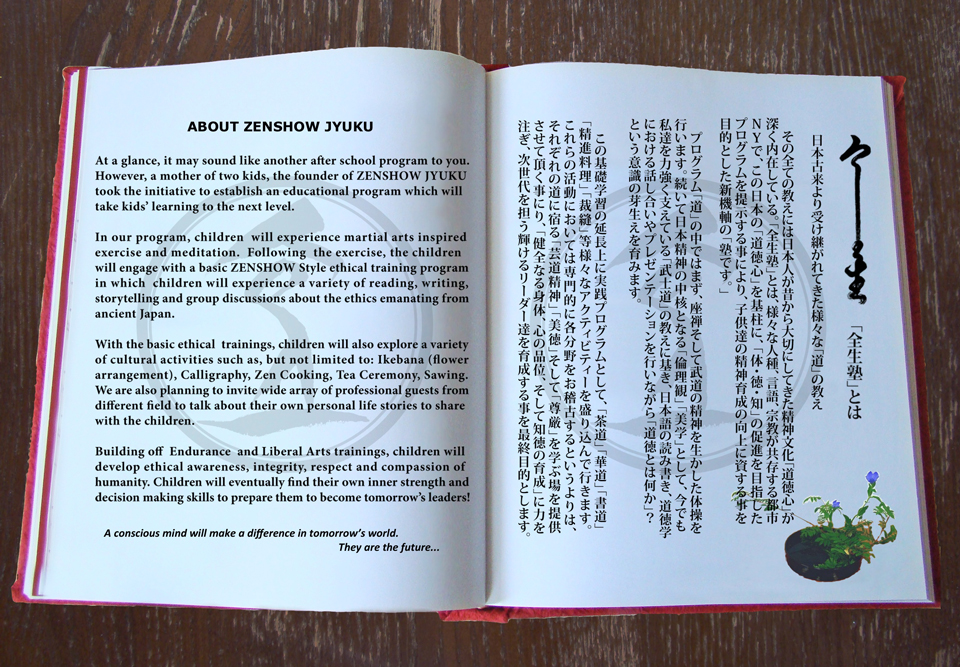 ABOUT ZENSHOW JYUKU
At a glance, it may sound like another after school program to you.
However, a mother of two kids, the founder of ZENSHOW JYUKU
took the initiative to establish an educational program which will
take kids' learning to the next level.
In our program, children will experience martial arts inspired
exercise and meditation. Following the exercise, the children
will engage with a basic ZENSHOW Style ethical training program
in which children will experience a variety of reading, writing,
storytelling and group discussions about the ethics emanating from
ancient Japan.
With the basic ethical trainings, children will also explore a variety
of cultural activities such as, but not limited to: Ikebana (flower
arrangement), Calligraphy, Zen Cooking, Tea Ceremony, Sawing.
We are also planning to invite wide array of professional guests from
different field to talk about their own personal life stories to share
with the children.
Building off Endurance and Liberal Arts trainings, children will
develop ethical awareness, integrity, respect and compassion of
humanity. Children will eventually find their own inner strength and
decision making skills to prepare them to become tomorrow's leaders!
A conscious mind will make a difference in tomorrow's world.
They are the future...
「全生塾」とは
日本古来より受け継がれてきた様々な「道」の教え
その全ての教えには日本人が昔から大切にしてきた精神文化「道徳心」が
深く内在している。「全生塾」とは、様々な人種、言語、宗教が共存する都市
NYで、この日本の「道徳心」を基柱に、「体・徳・知」の促進を目指した
プログラムを提示する事により、子供達の精神育成の向上に資する事を
目的とした新機軸の「塾です。」
プログラム「道」の中ではまず、座禅そして武道の精神を生かした体操を
行います。続いて日本精神の中核となる「倫理観」「美学」として、今でも
私達を力強く支えている「武士道」の教えに基き、日本語の読み書き、道徳学
における話し合いやプレゼンテーションを行いながら「道徳とは何か」?
という意識の芽生えを育みます。
この基礎学習の延長上に実践プログラムとして、「茶道」「華道」「書道」
「精進料理」「裁縫」等様々なアクティビティーを盛り込んで行きます。
これらの活動においては専門的に各分野をお稽古するというよりは、
それぞれの道に宿る「芸道精神」「美徳」そして「尊厳」を学ぶ場を提供
させて頂く事にり、「健全なる身体、心の品位、そして知徳の育成」に力を
注ぎ、次世代を担う輝けるリーダー達を育成する事を最終目的とします。